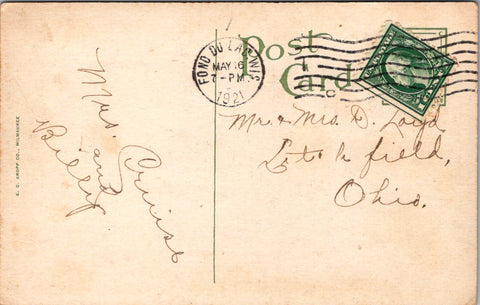 Post
Card
FOND DU LAC, WIS
MAY 16
7-PM
1921
Mrs. Cruise
and
Billy
Mr. & Mrs. D. Loyd
Litchfield,
Ohio.
E. C. KROPP CO., MILWAUKEE